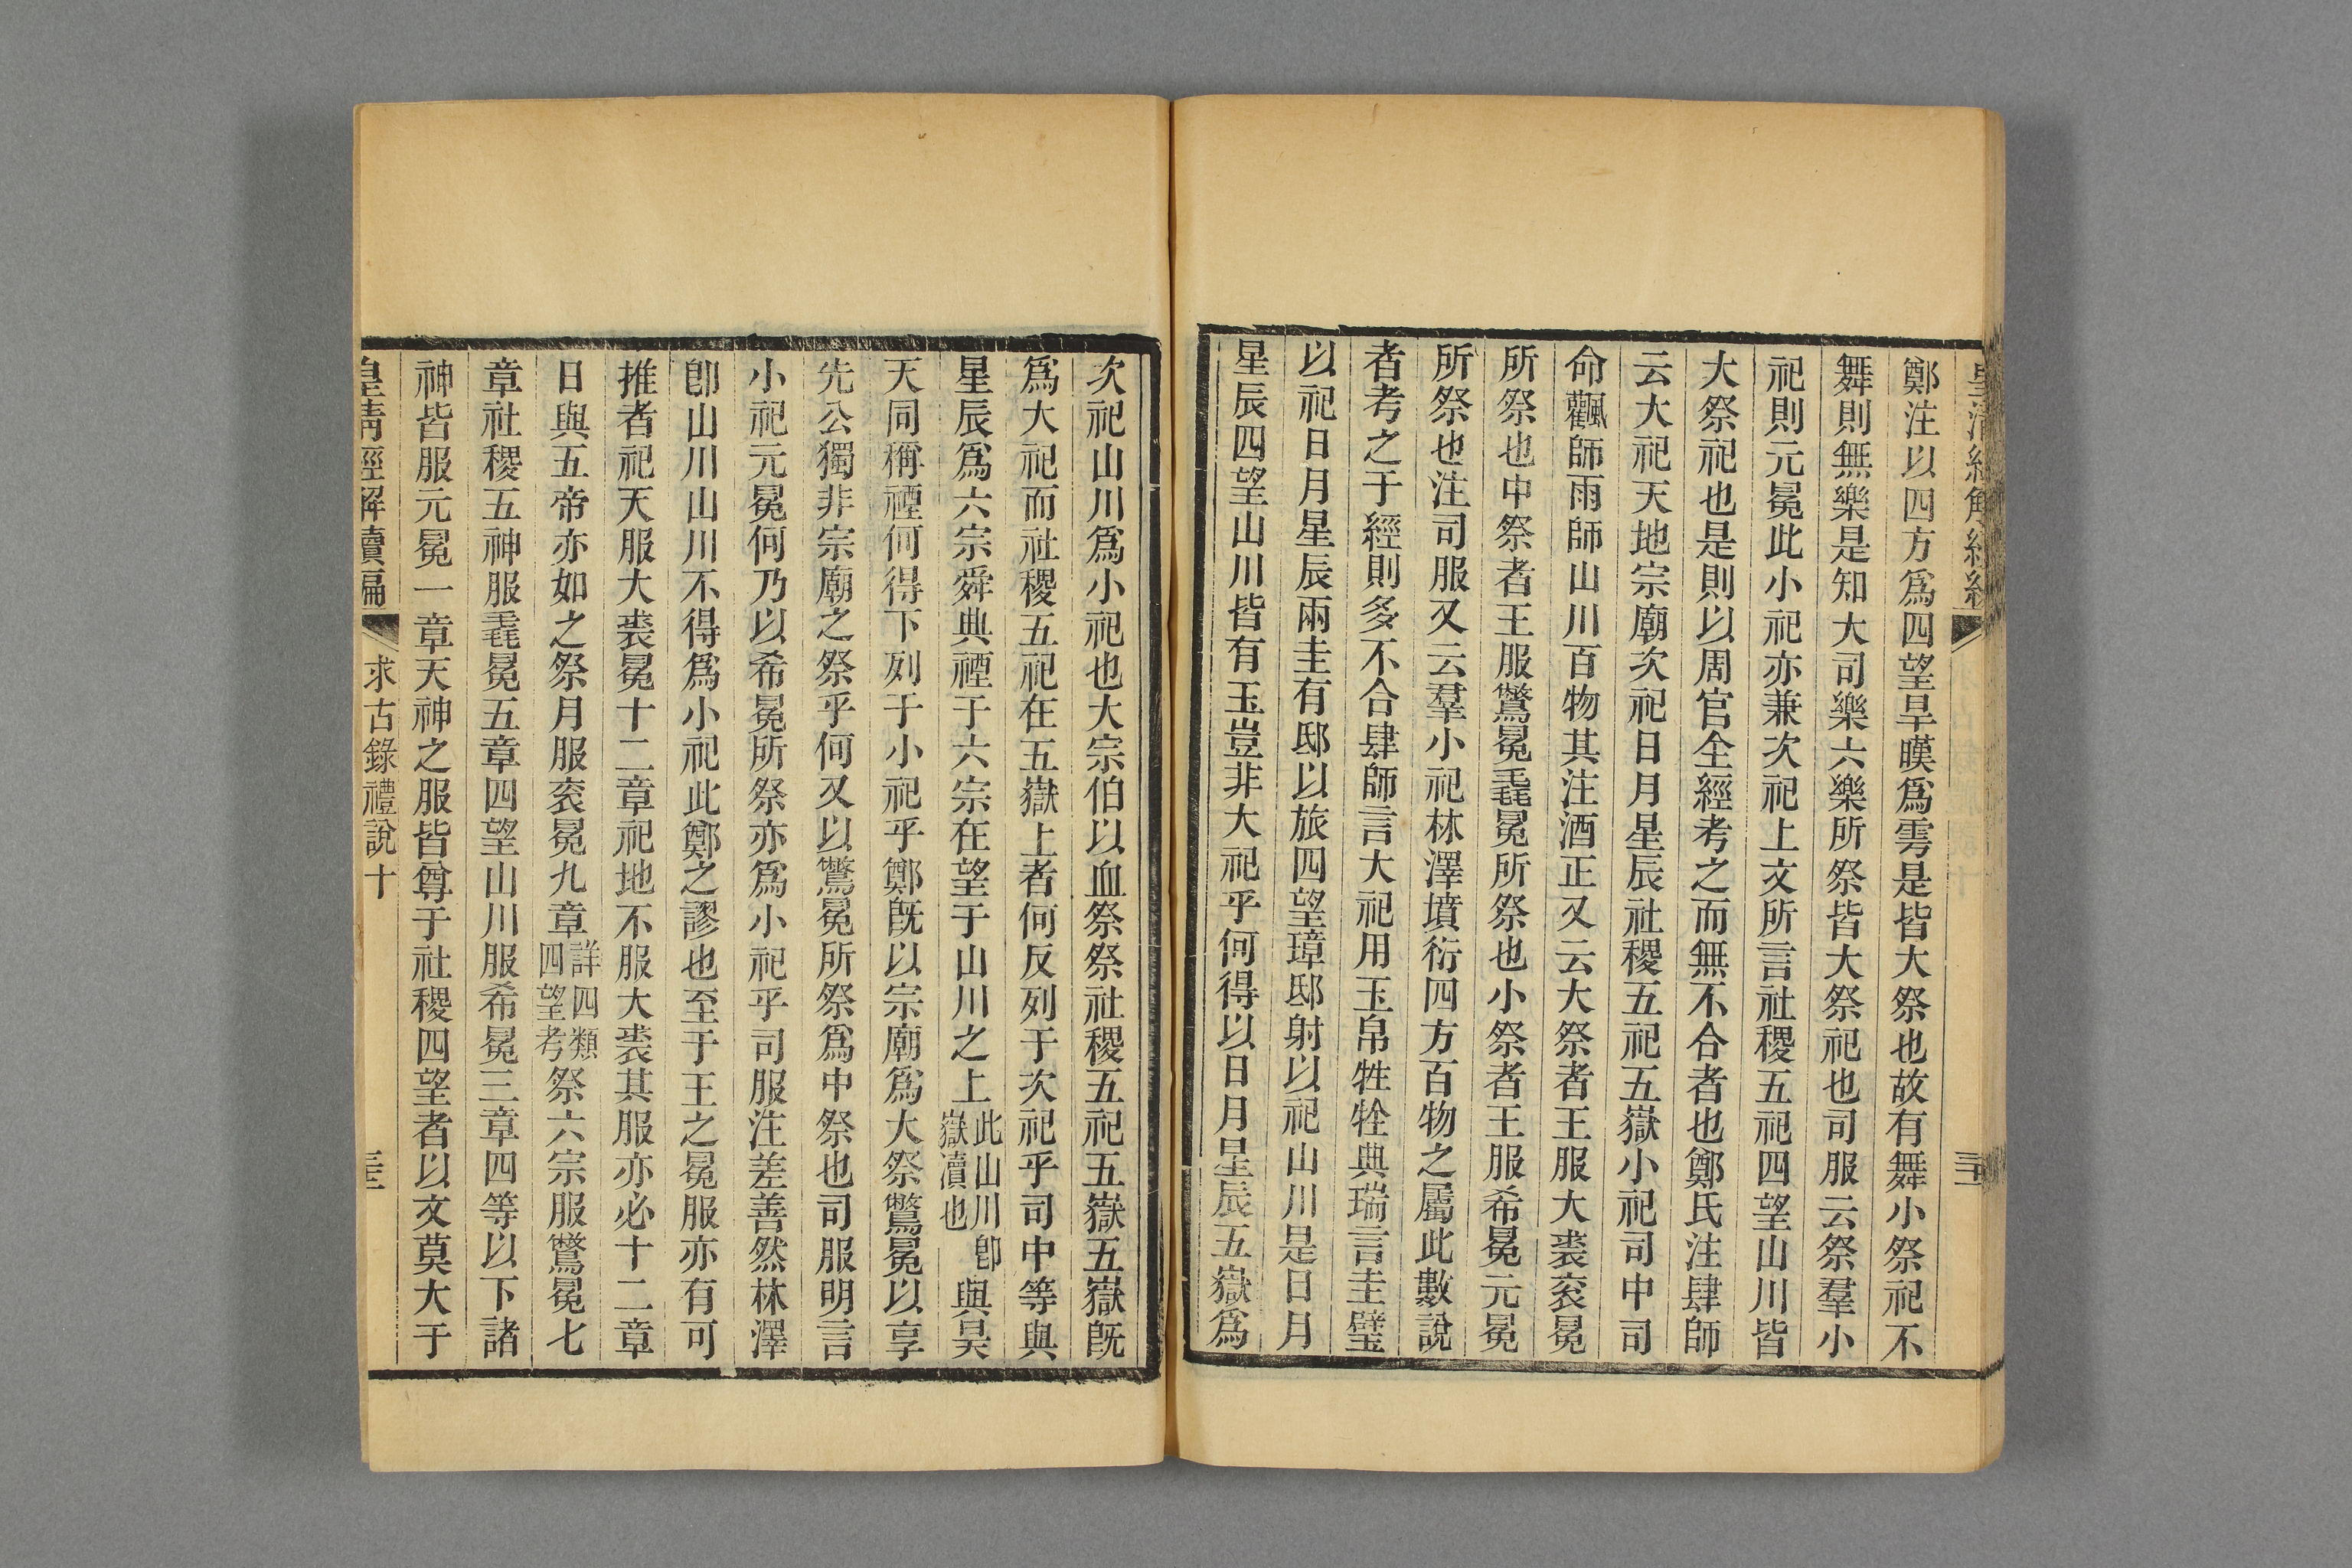 鄭注以四方爲四望旱暵爲雩是皆大祭也故有舞小祭祀不
舞則無樂是知大司樂六樂所祭皆大祭祀也司服云祭羣小
祀則元冕此小祀亦兼次祀上文所言社稷五祀四望山川皆
大祭祀也是則以周官全經考之而無不合者也鄭氏注肆師
云大祀天地宗廟次祀日月星辰社稷五祀五嶽小祀司中司
命飌師雨師山川百物其注酒正又云大祭者王服大裘袞冕
所祭也中祭者王服鷩冕毳冕所祭也小祭者王服希冕元冕
所祭也注司服又云羣小祀林澤墳衍四方百物之屬此數說
者考之于經則多不合肆師言大祀用玉帛牲牷典瑞言圭璧
以祀日月星辰兩圭有邸以旅四望璋邸射以祀山川是日月
星辰四望山川皆有玉豈非大祀乎何得以日月星辰五嶽爲
次祀山川爲小祀也大宗伯以血祭祭社稷五祀五嶽五嶽旣
爲大祀而社稷五祀在五嶽上者何反列于次祀乎司中等與
星辰爲六宗舜典禋于六宗在望于山川之上此山川卽嶽瀆也與昊
天同稱禋何得下列于小祀乎鄭旣以宗廟爲大祭鷩冕以享
先公獨非宗廟之祭乎何又以鷩冕所祭爲中祭也司服明言
小祀元冕何乃以希冕所祭亦爲小祀乎司服注差善然林澤
卽山川山川不得爲小祀此鄭之謬也至于王之冕服亦有可
推者祀天服大裘冕十二章祀地不服大裘其服亦必十二章
日與五帝亦如之祭月服袞冕九章詳四類四望考祭六宗服鷩冕七
章社稷五神服毳冕五章四望山川服希冕三章四等以下諸
神皆服元冕一章天神之服皆尊于社稷四望者以文莫大于
皇淸經解續編
求古錄禮說十